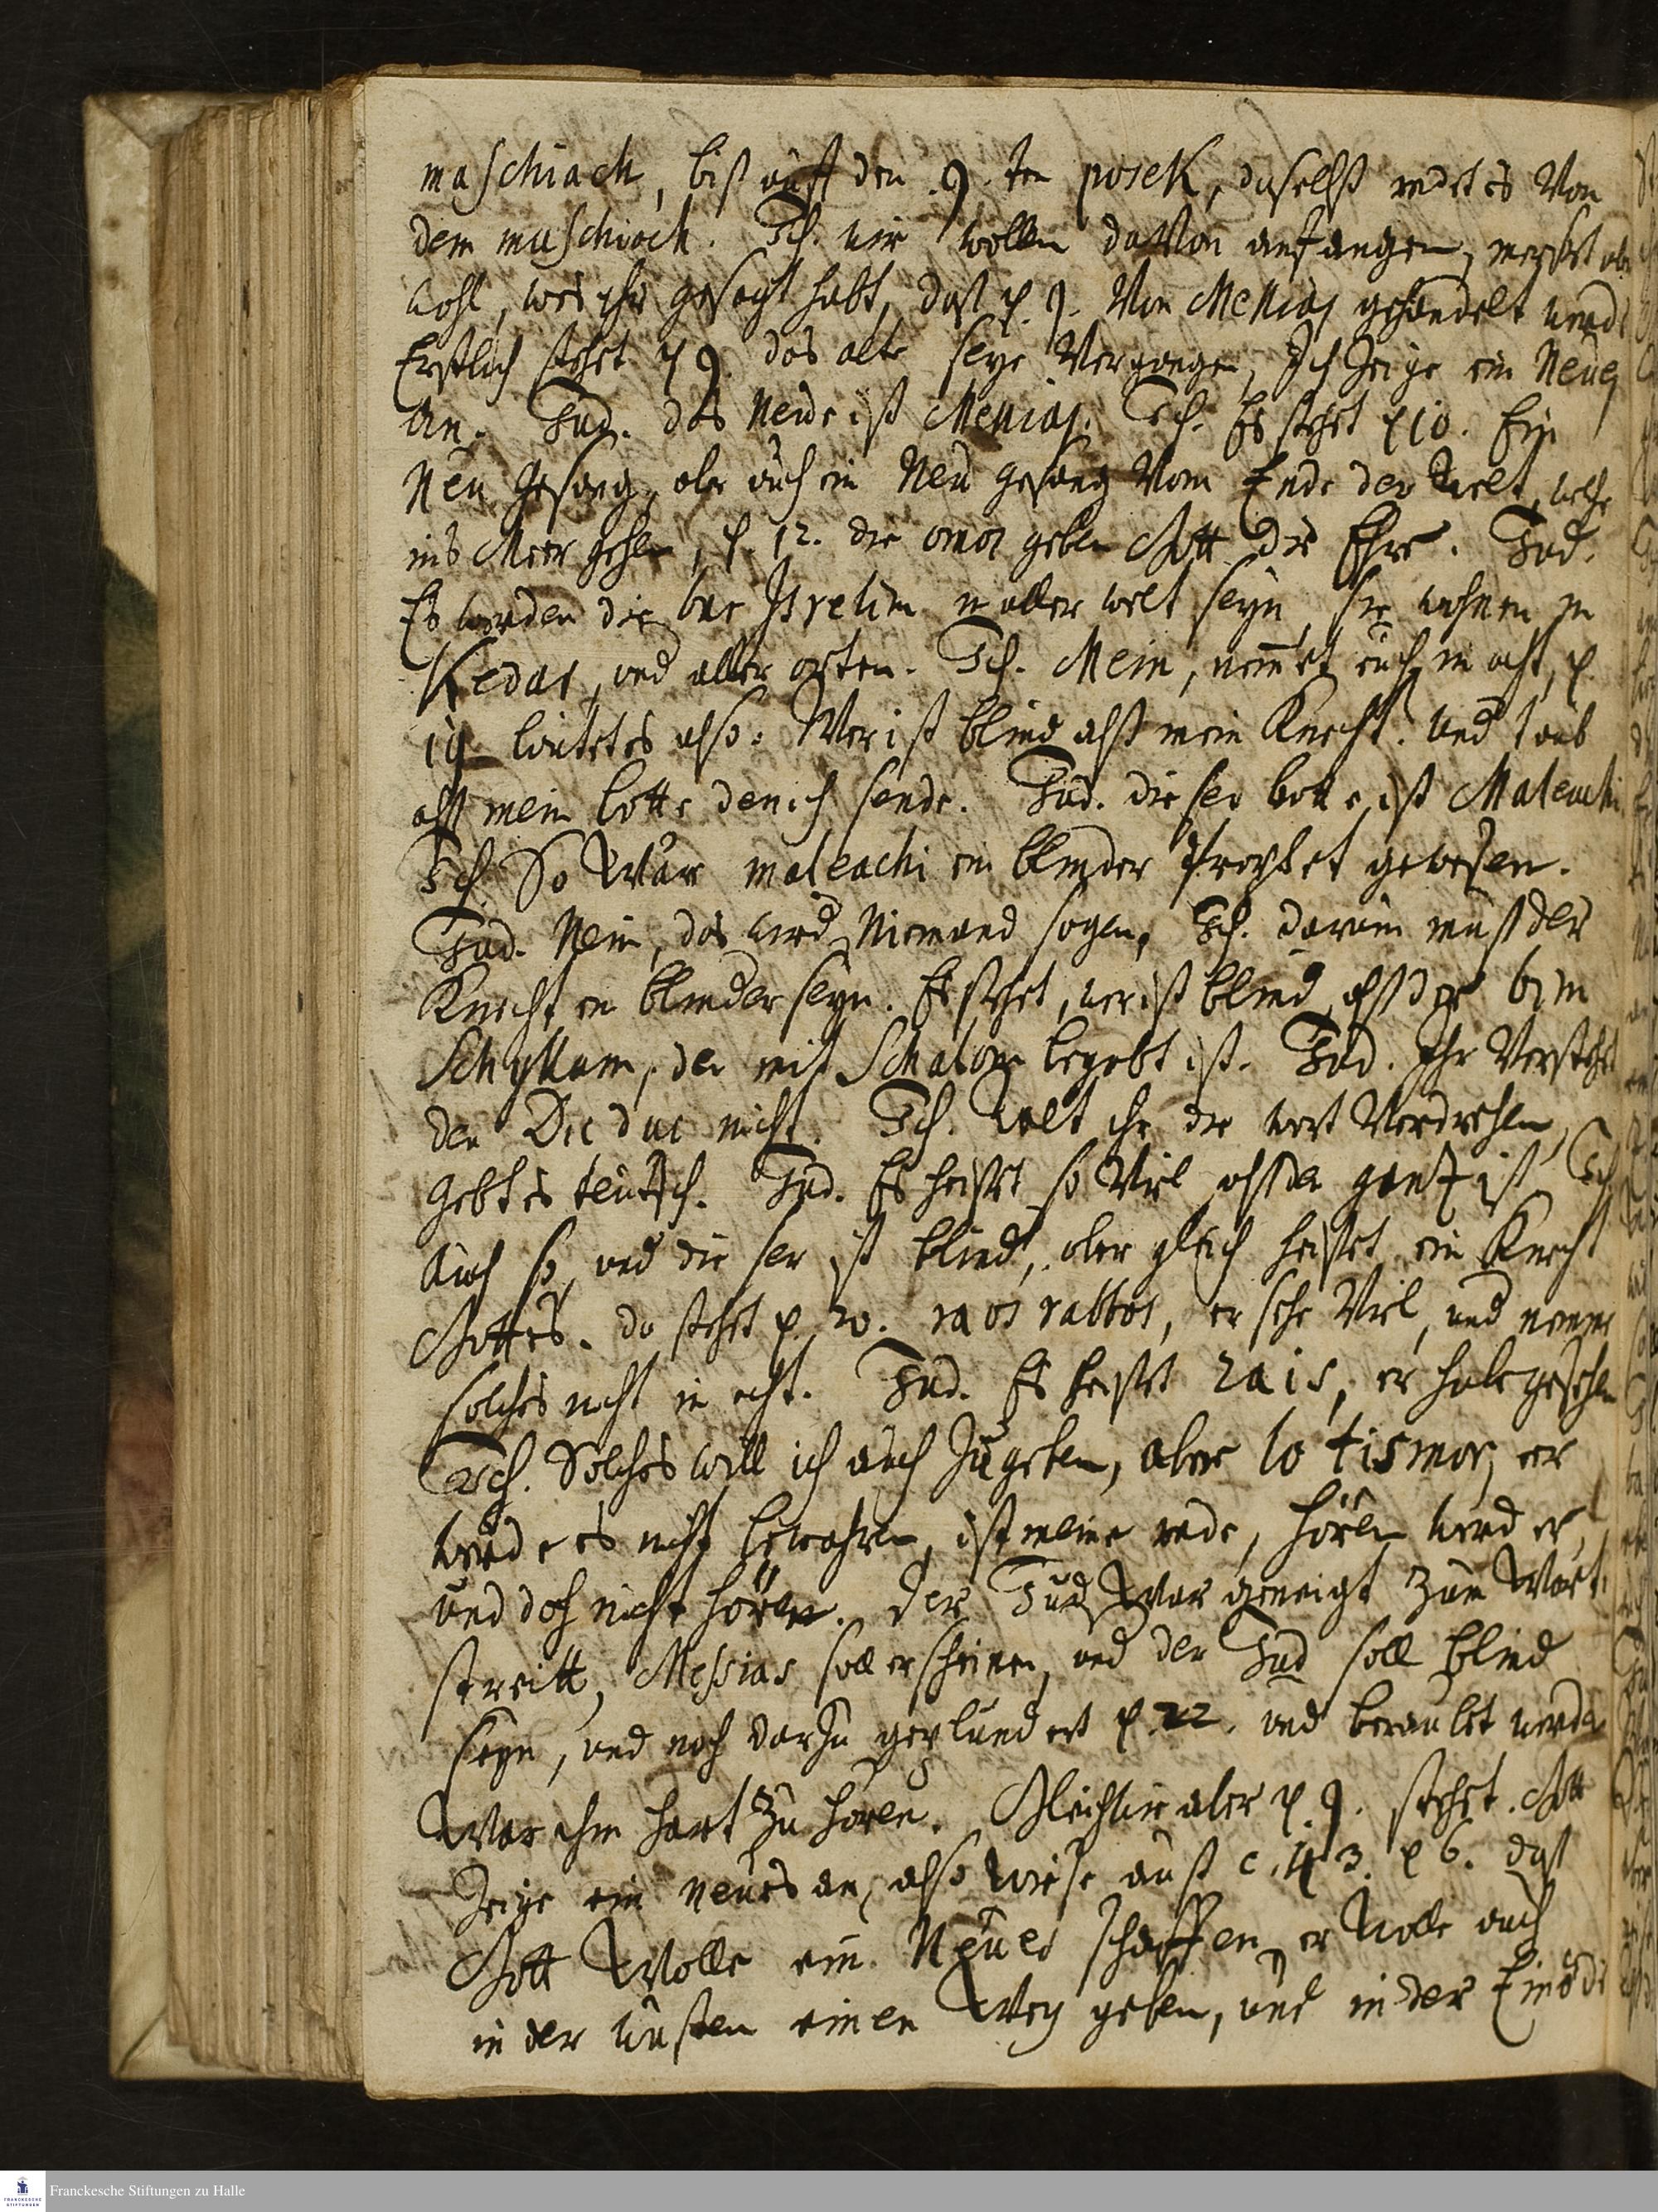 maschiach, biß auff den .9.ten posek, daselbst redet es Von
dem maschiach. Ich. wir wollen davon anfangen, mercket abe
wohl, was ihr gesagt habt, daß p. 9. Von Messias gehandelt werde
Erstlich stehet p 9. das alte seye Vergangen, Ich Zeige ein Neues
an. Jud. das Neue ist Messias. Ich. Es stehet p 10. Ein
Neu Gesang, aber auch ein Neu gesang Vom Ende der Welt, welche
ins Meer gehen, p. 12. die geben Gott die Ehre. Jud.
Es werden die bne Isrelim in aller welt seyn, sie wohnen in
Kedar, und aller orten. Ich. Mein, nemet euch in acht, p.
19. lautet es also: Wer ist blind alß mein Knecht. und taub
alß mein botte den ich sende. Jud. dieser botte ist Maleachi
Ich. So wär maleachi ein blinder Prophet gewesen.
Jud. Nein, das wird Niemand sagen, Ich. darum muß der
Knecht ein blinder seyn. Es stehet, wer ist blind, alß der bim
Schyllam, der mit Schalom begabt ist. Jud. Ihr Verstehet
den Dicduc nicht. Ich. Wolt ihr die wort Verdrehen,
gebt es teutsch. Jud. Es heisset so Viel alß der gantz ist. Ich
Auch so, und dieser ist blind, aber gleich heisset ein Knecht
Gottes. da stehet p. 20. raos rabbos, er sehe Viel, und nemme
solches nicht in acht. Jud. Es heisset rais, er habe gesehen
Ich. Solches will ich auch zugeben, aber lo tismor, er
werde es nicht bewahren, ist meine rede, hören werd er,
und doch nicht hören. der Jud war geneigt zum Wort
streitt, Messias soll erscheinen, und der Jud soll blind
seyn, und noch darzu geplündert p. 22. und beraubet werden
war ihm hart zu hören. Gleichwie aber p. 9. stehet. Gott
Zeige ein neues an, also wiese auß c. 43. p 6. daß
Gott wolle ein Neues schaffen, er wolle auch
in der wüsten einen Weg geben, und in der Einöde
Franckesche Stiftungen zu Halle